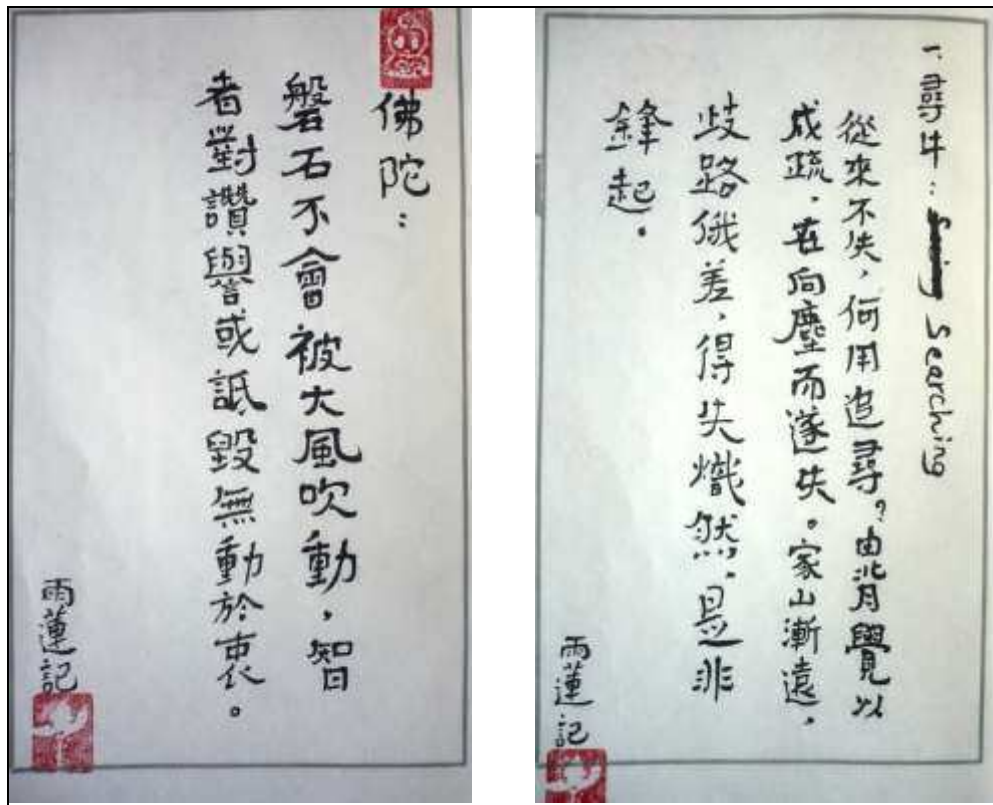 佛陀：
磐石不會被大風吹動，智
者對讚譽或詆毀無動於衷。
雨蓮記
一、尋牛：Searching
從來不失，何用追尋？由背覺以
成疏，在向塵而遂失。家山漸遠，
歧路俄差，得失熾然，是非
鋒起。
雨蓮記